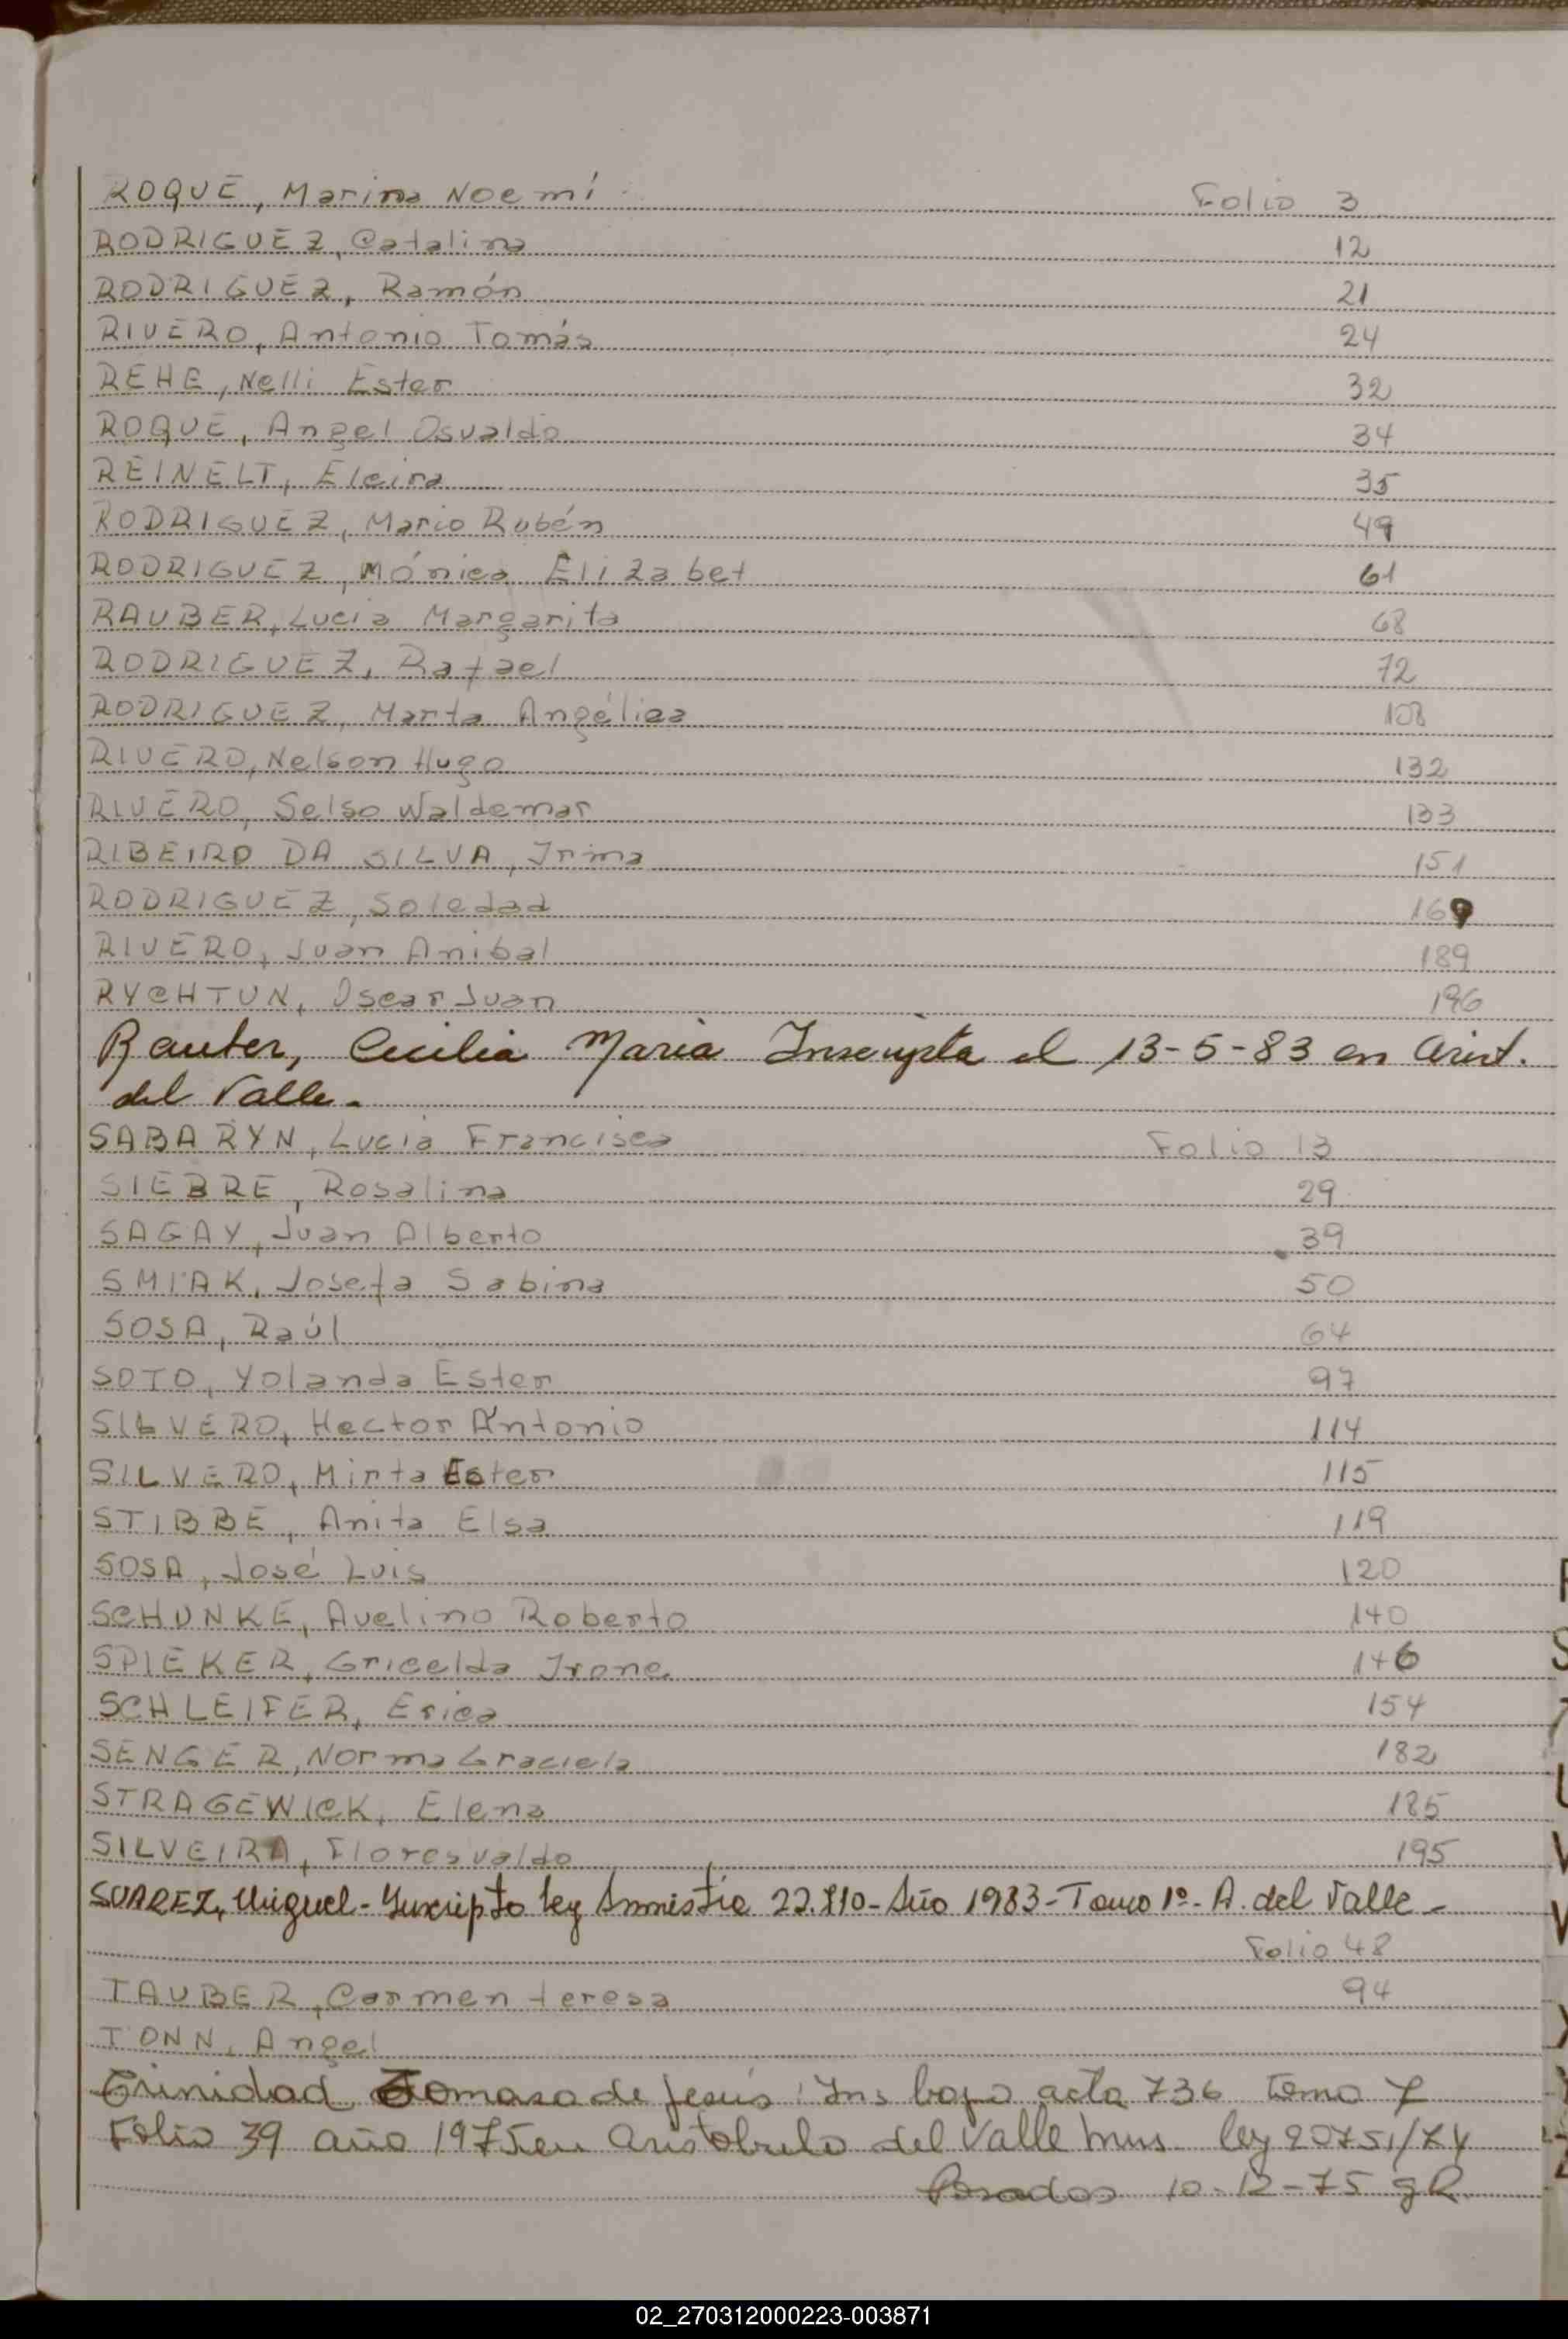 ROQUE, Marina Noemí Folio 3
RODRIGUEZ, Catalina 12
RODRIGUEZ, Ramón 21
RIVERO, Antonio Tomás 24
REHE, Nelli Ester 32
ROQUE, Angel Osvaldo 34
REINELT, Elcira 35
RODRIGUEZ, Mario Rubén 49
RODRIGUEZ, Mónica Elizabet 61
RAUBER, Lucia Margarita 68
RODRIGUEZ, Rafael 72
RODRIGUEZ, Marta Angélica 108
RIVERO, Nelson Hugo 132
RIVERO, Selso Waldemar 133
RIBEIRO DA SILVA, Irima 151
RODRIGUEZ, Soledad 169
RIVERO, Juan Anibal 189
RYCHTUN, Oscar Juan 196
Rauber, Cecilia Maria Inscripta el 13-5-83 en Arist.
del Valle.-
SABARYN, Lucia Francisca Folio 13
SIEBRE, Rosalina 29
SAGAY, Juan Alberto 39
SMIAK, Josefa Sabina 50
SOSA, Raúl 64
SOTO, Yolanda Ester 97
SILVERO, Hector Antonio 114
SILVERO, Mirta Ester 115
STIBBE, Anita Elsa 119
SOSA, José Luis 120
SCHUNKE, Avelino Roberto 140
SPIEKER, Gricelda Irone 146
SCHLEIFER, Erica 154
SENGER, Norma Graciela 182
STRAGEWICK, Elena 185
SILVEIRA, Floresvaldo 195
SUAREZ, Miguel - Inscripto ley Amnistía 22.810 - Año 1983 - Tomo 1º - A. del Valle -
Folio 48
TAUBER, Carmen teresa 94
TONN, Angel
Trinidad Tomasa de Jesús: Ins bajo acta 736 Tomo 7
Folio 39 año 1975 en Aristobulo del Valle Mnes ley 20751/74
Posadas 10-12-75 gR.
02_270312000223-003871